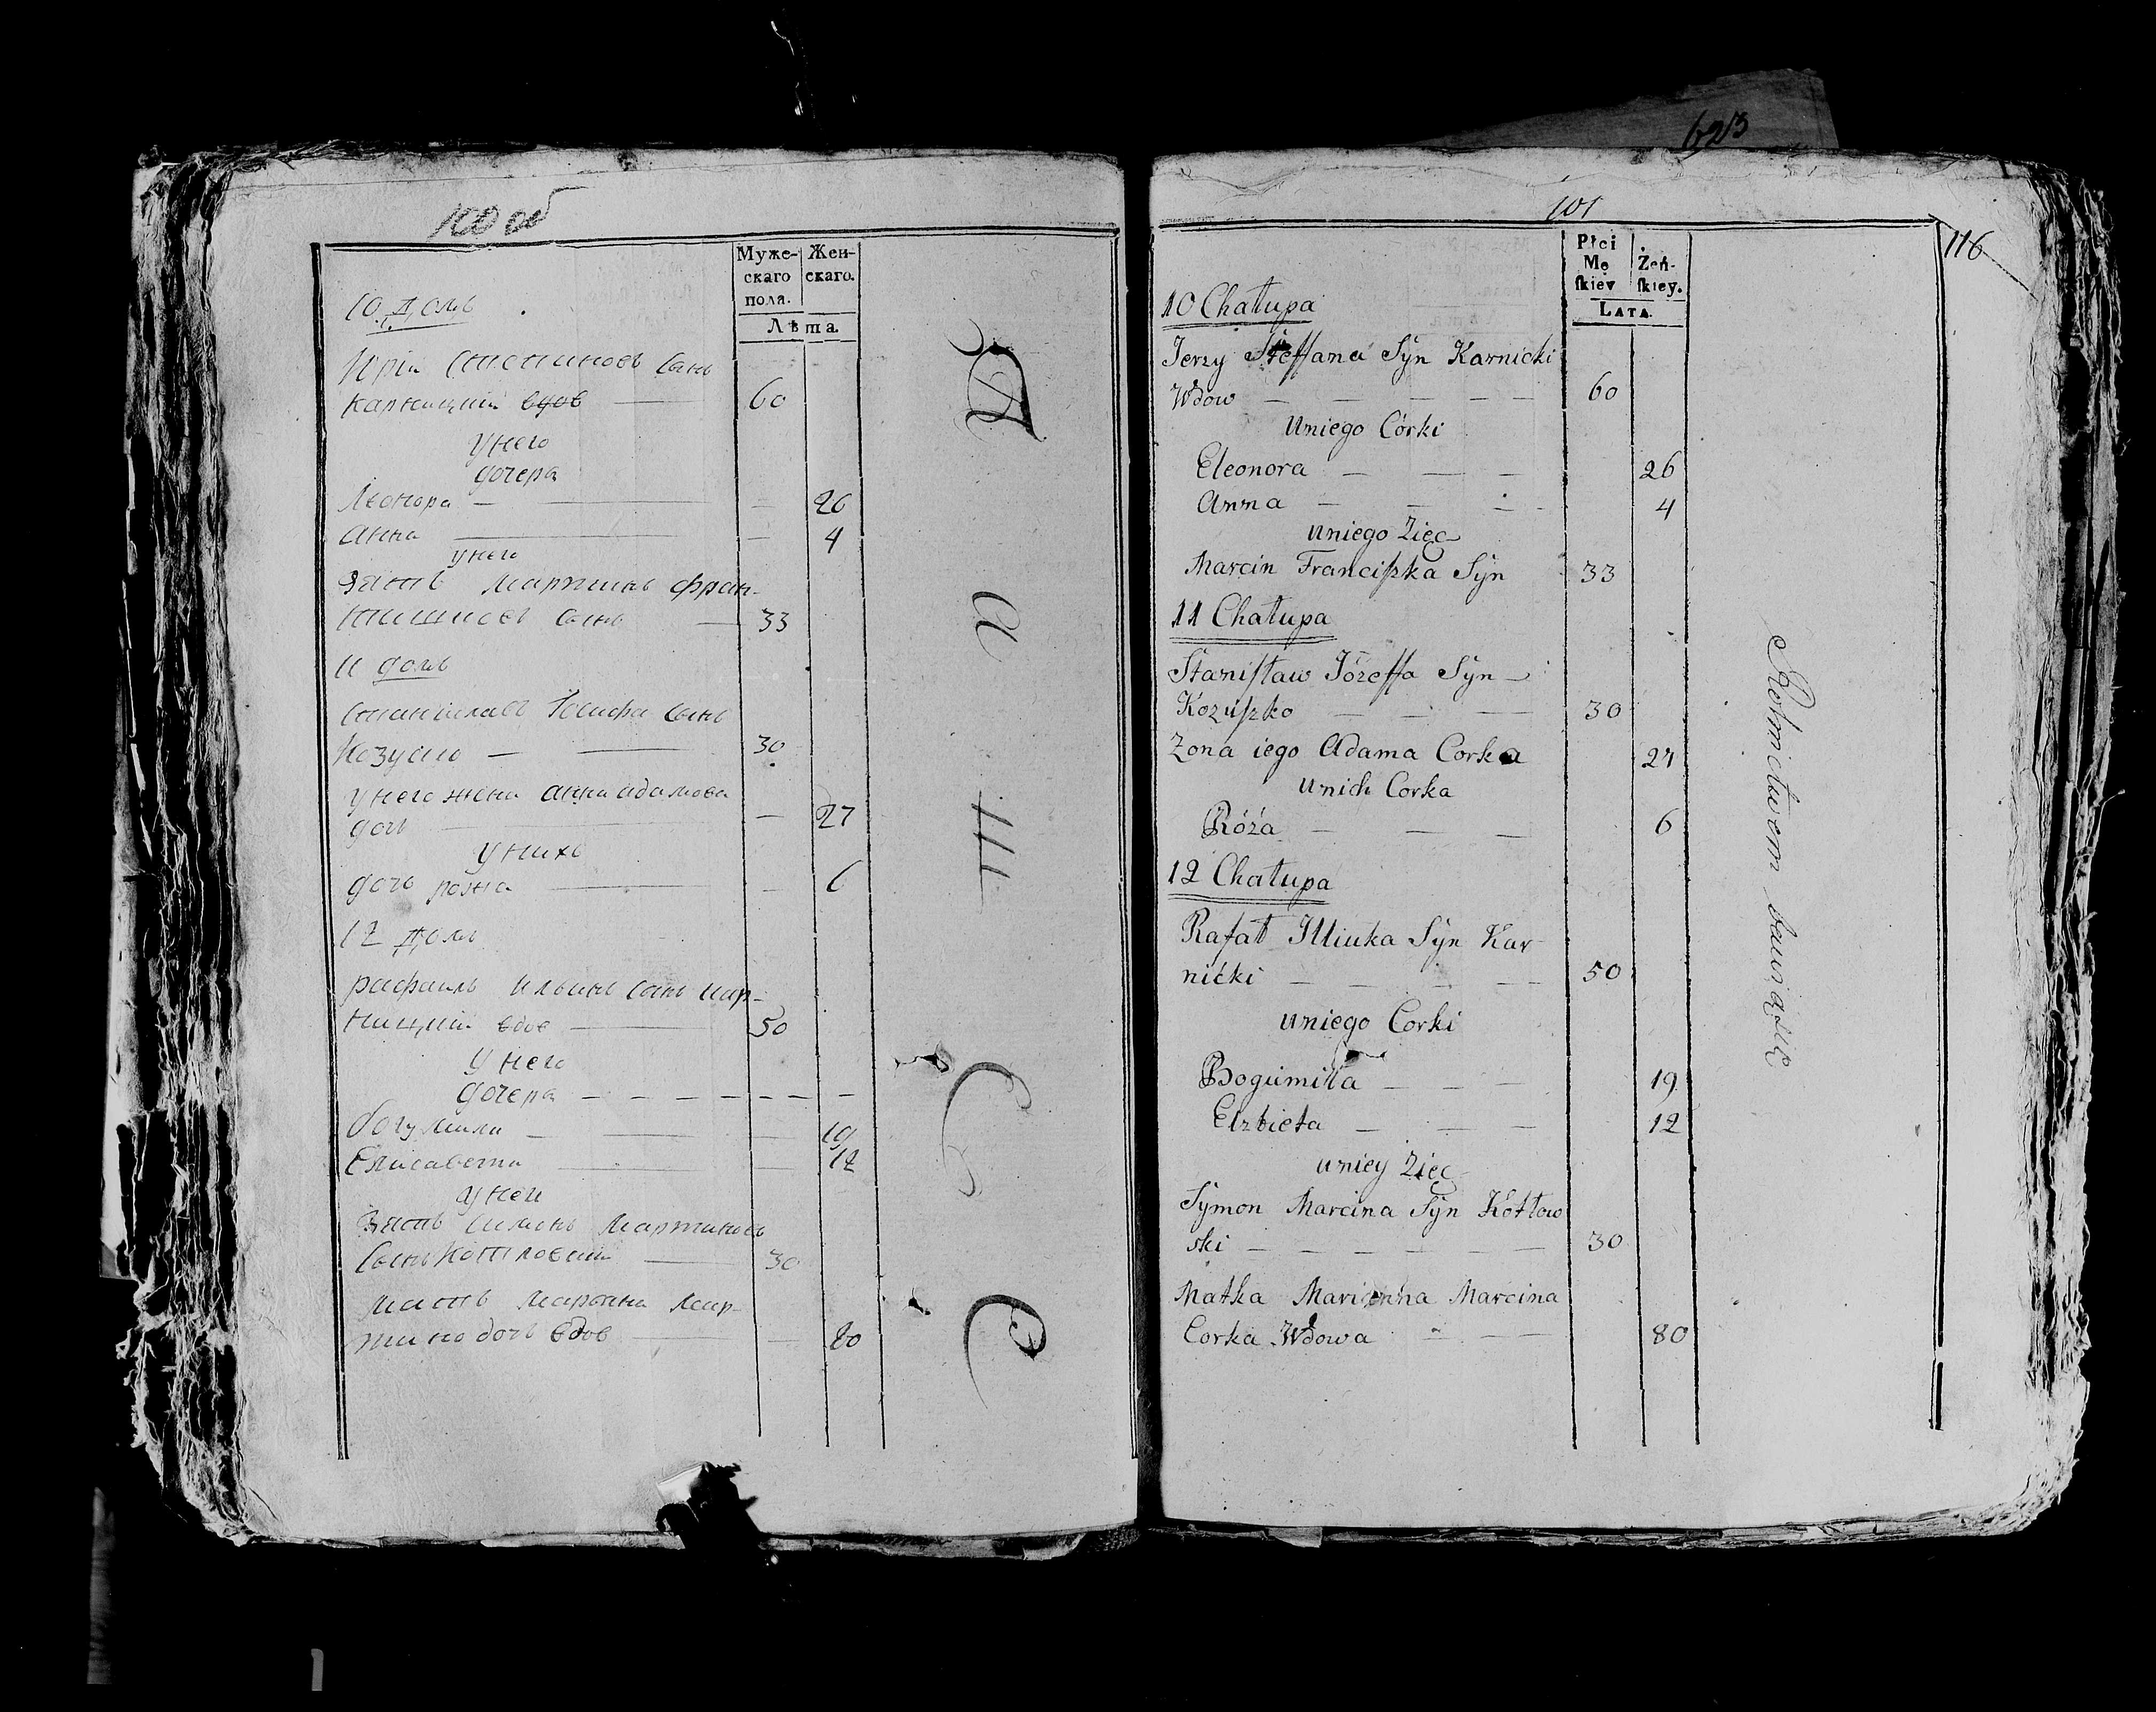 100 об
Муже-
скаго
пола.
Жен-
скаго.
Лѣта.
10 домъ
Юрiи Степановъ сынъ
Карницкiй вдов 60
У него
дочера
Леонора 26
Анна 4
у него
Зять Мартинъ Фран-
тишковъ сынъ 33
11 домъ
Станиславъ Iосифа сынъ
Козушко 30
У него жена Анна Адамова
дочь 27
У нихъ
дочь рожа 6
12 домъ
Рафаилъ Ильинъ сынъ Кар-
ницкiй вдов 50
У него
дочера
Богумила 19
Елисавета 12
у неи
Зять Симонъ Мартиновъ
Сынъ Котловскiй 30
мать Марьяна Мар-
тина дочь вдов 80
П
а
ш
623
101
116
Płci
Mę
skiey
Żeń-
skiey.
LATA.
10 Chałupa
Jerzy Steffana Syn Karnicki
Wdow 60
Uniego Córki
Eleonora 26
Anna 4
Uniego Zięc
Marcin Franciszka Syn 33
11 Chałupa
Stanisław Józeffa Syn
Kozuszko 30
Zona iego Adama Corka 27
Unich Corka
Róża 6
12 Chałupa
Rafał Illiuka Syn Kar-
nićki 50
Uniego Corki
Bogumiła 19
Elzbieta 12
uniey Zięc
Symon Marcina Syn Kotłow
ski 30
Matka Marianna Marcina
Corka Wdowa 80
Rolnictwem bawią się